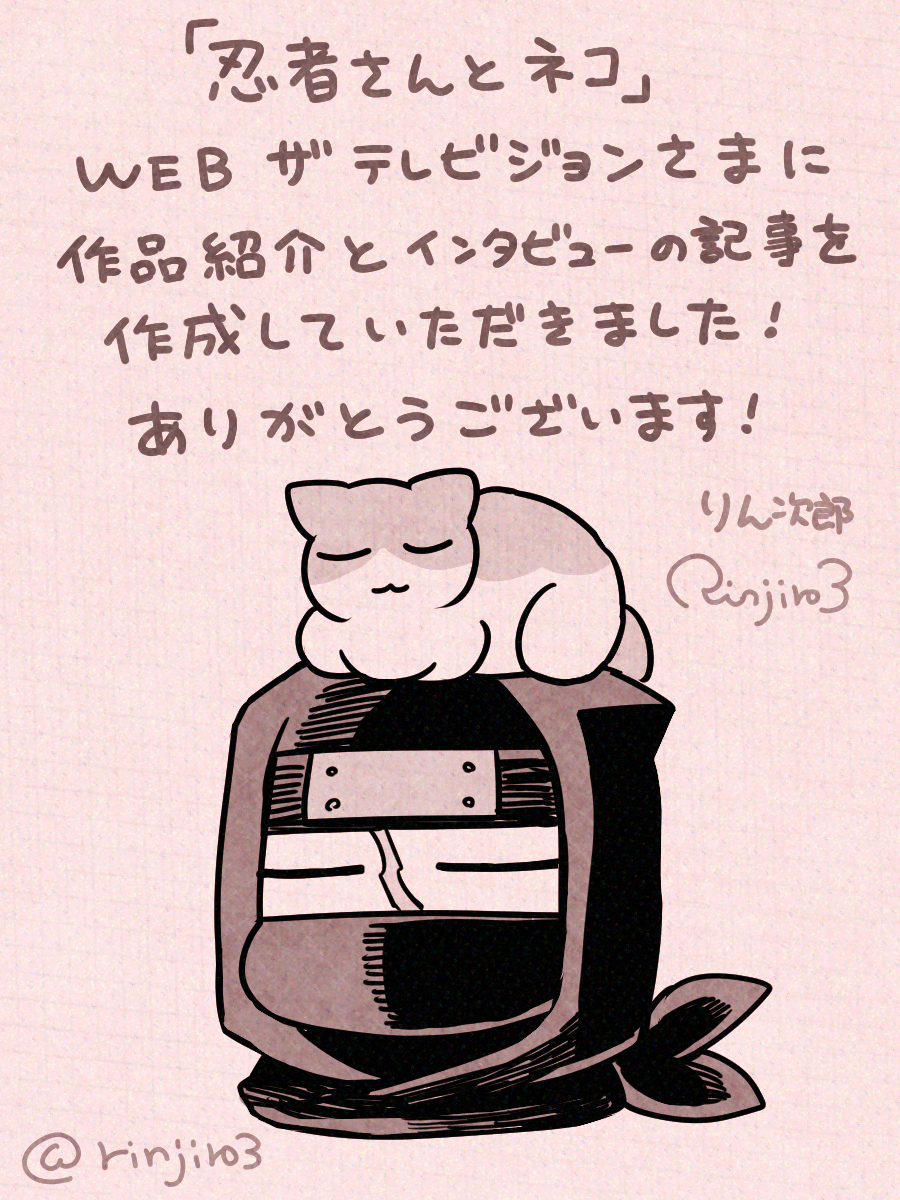 「忍者さんとネコ」
WEB ザテレビジョンさまに
作品紹介とインタビューの記事を
作成していただきました！
ありがとうございます！
りん次郎
Rinjiro3
@rinjiro3